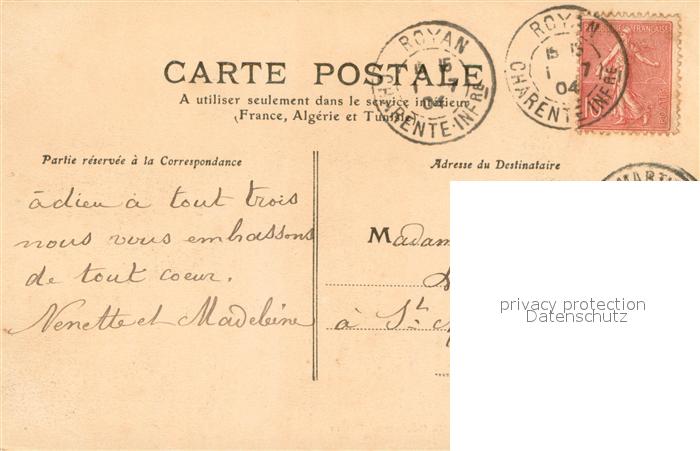 ROYAN
15
1 7
04
CHARENTE-INFRE
ROYAN
15 15
1 7
04
CHARENTE-INFRE
FRANÇAISE
POSTES
CARTE POSTALE
A utiliser seulement dans le service intérieur
France, Algérie et Tunisie
Partie réservée à la Correspondance
Adresse du Destinataire
MARTI
àdieu à tout trois
nous vous embrassons
de tout coeur.
Nenette et Madeleine
Madam
à St
privacy protection
Datenschutz